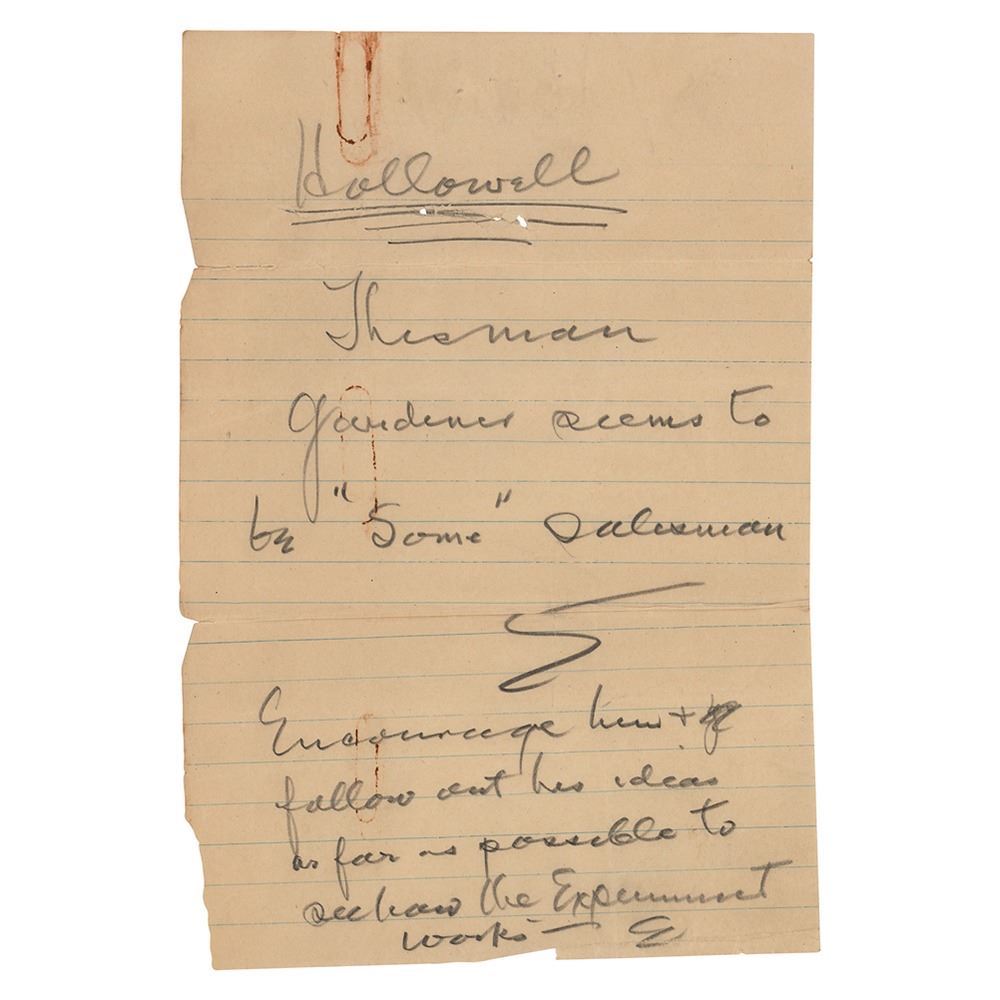 Hollowell
This man
Gardener seems to
be "Some" salesman
E
Encourage him +
follow out his ideas
as far as possible to
see how the Experiment
works — E